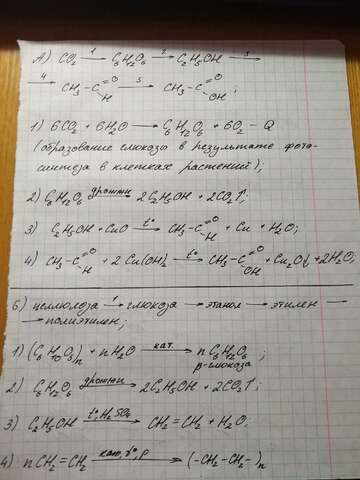 А) CO₂ —1→ C₆H₁₂O₆ —2→ C₂H₅OH —3→
—4→ CH₃-C(=O)H —5→ CH₃-C(=O)OH ;
1) 6CO₂ + 6H₂O → C₆H₁₂O₆ + 6O₂ - Q
(образование глюкозы в результате фото-
синтеза в клетках растений);
2) C₆H₁₂O₆ —дрожжи→ 2C₂H₅OH + 2CO₂↑;
3) C₂H₅OH + CuO —t°→ CH₃-C(=O)H + Cu + H₂O;
4) CH₃-C(=O)H + 2Cu(OH)₂ —t°→ CH₃-C(=O)OH + Cu₂O↓ + 2H₂O;
б) целлюлоза —1→ глюкоза → этанол → этилен →
→ полиэтилен;
1) (C₆H₁₀O₅)ₙ + nH₂O —кат.→ nC₆H₁₂O₆ ;
β-глюкоза
2) C₆H₁₂O₆ —дрожжи→ 2C₂H₅OH + 2CO₂↑;
3) C₂H₅OH —t°, H₂SO₄→ CH₂=CH₂ + H₂O.
4) nCH₂=CH₂ —кат, t°, p→ (-CH₂-CH₂-)ₙ